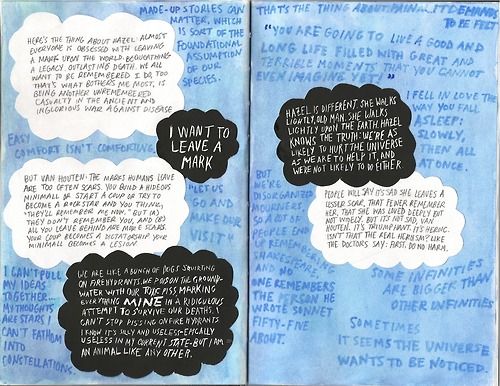 MADE-UP STORIES CAN
MATTER, WHICH
IS SORT OF THE
FOUNDATIONAL
ASSUMPTION
OF OUR
SPECIES.
HERE'S THE THING ABOUT HAZEL: ALMOST
EVERYONE IS OBSESSED WITH LEAVING
A MARK UPON THE WORLD. BEQUEATHING
A LEGACY. OUTLASTING DEATH. WE ALL
WANT TO BE REMEMBERED. I DO, TOO.
THAT'S WHAT BOTHERS ME MOST, IS
BEING ANOTHER UNREMEMBERED
CASUALTY IN THE ANCIENT AND
INGLORIOUS WAR AGAINST DISEASE.
I WANT TO
LEAVE A
MARK
EASY
COMFORT ISN'T COMFORTING.
BUT VAN HOUTEN: THE MARKS HUMANS LEAVE
ARE TOO OFTEN SCARS. YOU BUILD A HIDEOUS
MINIMALL OR START A COUP OR TRY TO
BECOME A ROCKSTAR AND YOU THINK,
"THEY'LL REMEMBER ME NOW," BUT (A)
THEY DON'T REMEMBER YOU, AND (B)
ALL YOU LEAVE BEHIND ARE MORE SCARS.
YOUR COUP BECOMES A DICTATORSHIP. YOUR
MINIMALL BECOMES A LESION.
"LET US
GO AND
MAKE OUR
VISIT."
I CAN'T PULL
MY IDEAS
TOGETHER...
MY THOUGHTS
ARE STARS I
CAN'T FATHOM
INTO
CONSTELLATIONS.
WE ARE LIKE A BUNCH OF DOGS SQUIRTING
ON FIRE HYDRANTS. WE POISON THE GROUND-
WATER WITH OUR TOXIC PISS, MARKING
EVERYTHING MINE IN A RIDICULOUS
ATTEMPT TO SURVIVE OUR DEATHS. I
CAN'T STOP PISSING ON FIRE HYDRANTS.
I KNOW IT'S SILLY AND USELESS-EPICALLY
USELESS IN MY CURRENT STATE-BUT I AM
AN ANIMAL LIKE ANY OTHER.
THAT'S THE THING ABOUT PAIN... IT DEMANDS
TO BE FELT
"YOU ARE GOING TO LIVE A GOOD AND
LONG LIFE FILLED WITH GREAT AND
TERRIBLE MOMENTS THAT YOU CANNOT
EVEN IMAGINE YET!"
HAZEL IS DIFFERENT. SHE WALKS
LIGHTLY, OLD MAN. SHE WALKS
LIGHTLY UPON THE EARTH. HAZEL
KNOWS THE TRUTH: WE'RE AS
LIKELY TO HURT THE UNIVERSE
AS WE ARE TO HELP IT, AND
WE'RE NOT LIKELY TO DO EITHER.
I FELL IN LOVE THE
WAY YOU FALL
ASLEEP:
SLOWLY,
THEN ALL
AT ONCE.
BUT
WE'RE
DISORGANIZED
MOURNERS,
SO A LOT OF
PEOPLE END
UP REMEMBERING
SHAKESPEARE,
AND NO
ONE REMEMBERS
THE PERSON HE
WROTE SONNET
FIFTY-FIVE
ABOUT.
PEOPLE WILL SAY IT'S SAD SHE LEAVES A
LESSER SCAR, THAT FEWER REMEMBER
HER, THAT SHE WAS LOVED DEEPLY BUT
NOT WIDELY. BUT IT'S NOT SAD, VAN
HOUTEN. IT'S TRIUMPHANT. IT'S HEROIC.
ISN'T THAT THE REAL HEROISM? LIKE
THE DOCTORS SAY: FIRST, DO NO HARM.
SOME INFINITIES
ARE BIGGER THAN
OTHER INFINITIES
SOMETIMES
IT SEEMS THE UNIVERSE
WANTS TO BE NOTICED.